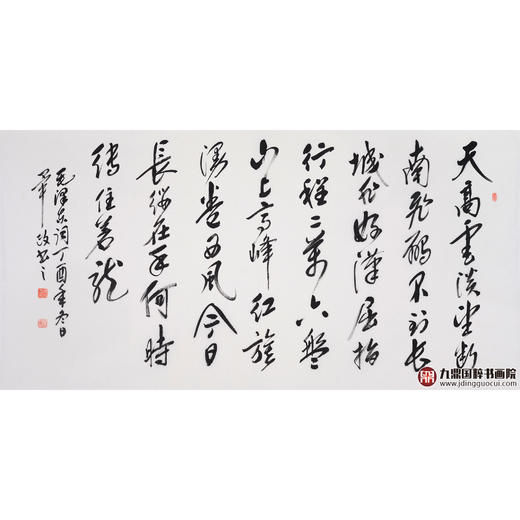 天高雲淡望断
南飛雁不到长
城非好漢屈指
行程二萬六盤
山上高峰红旗
漫卷西風今日
長缨在手何時
缚住蒼龍
毛澤东词丁酉年冬日
书之
九鼎国粹书画院
www.jdingguocui.com